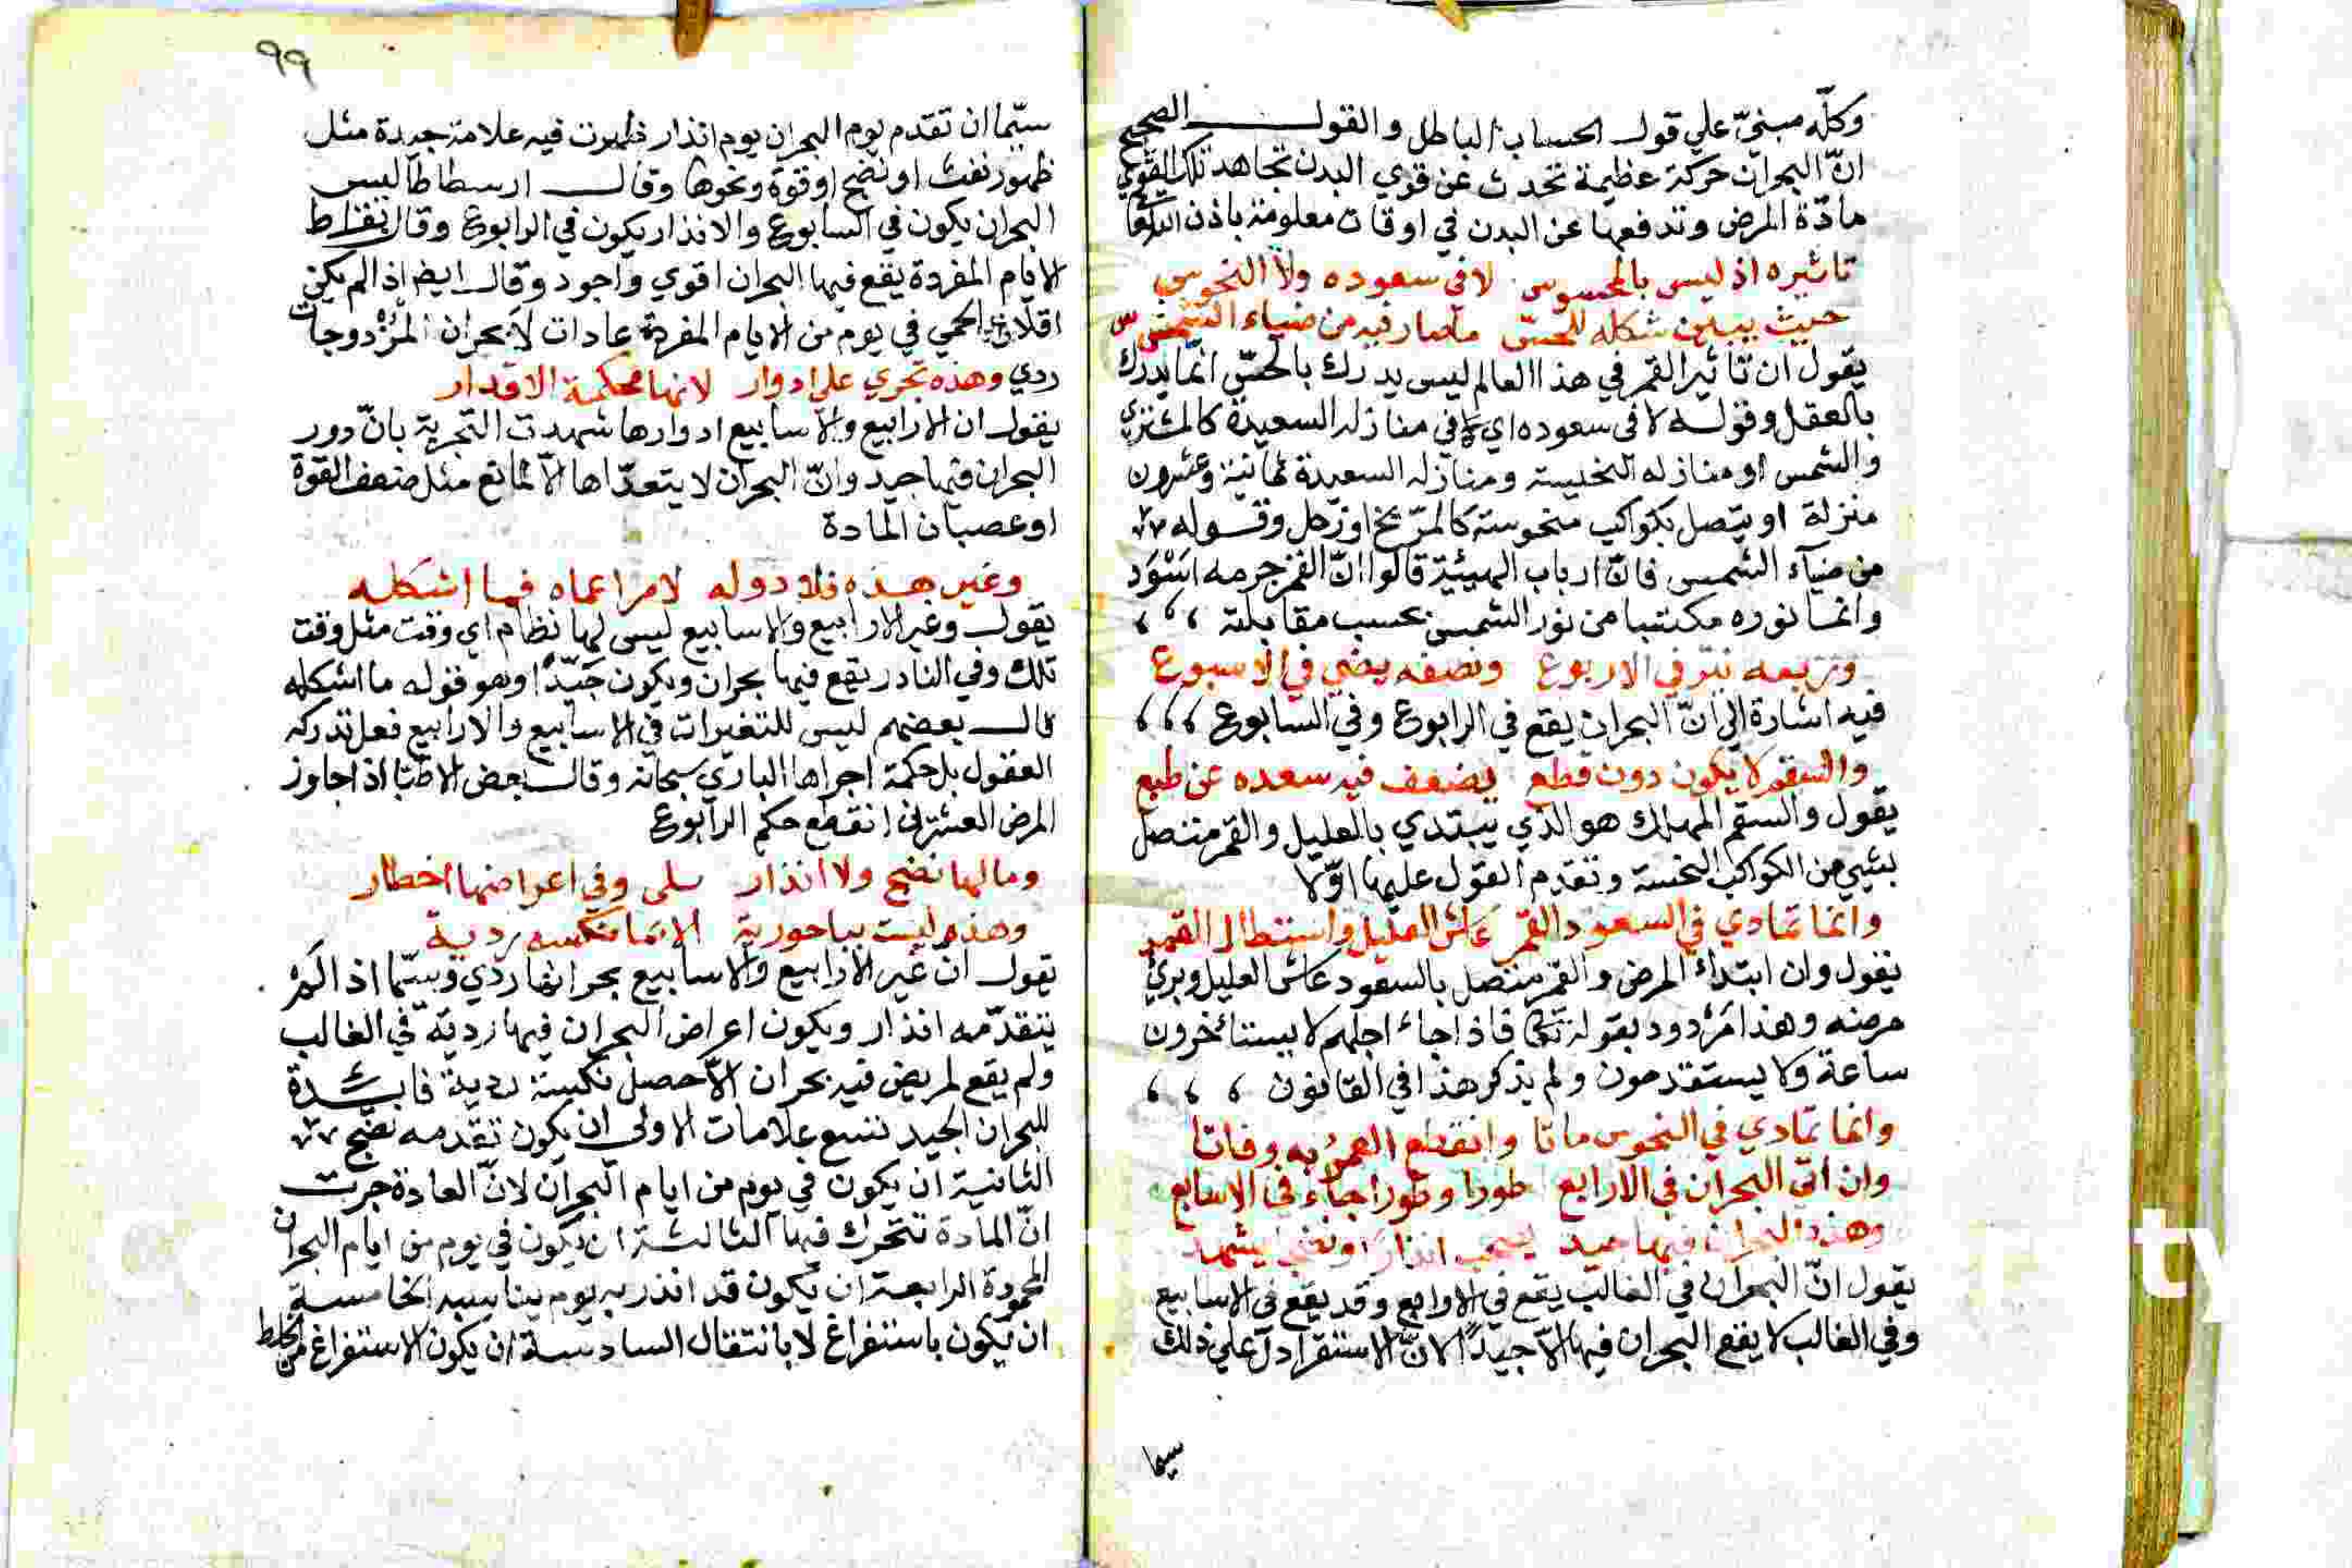 وكلّه مبنيّ علي قول الحساب الباطل والقول الصحيح
انّ البحران حركة عظيمة تحدث عن قوي البدن تجاهد تلك القوي
مادّة المرض وتدفعها عن البدن في اوقات معلومة باذن
تاثيره اذ ليس بالمحسوس لا في سعوده ولا النحوس
حيث يبين شكله للحس ما صار فيه من ضياء الشمس
يقول ان تاثير القمر في هذا العالم ليس يدرك بالحسّ انّما يدرك
بالعقل وقوله لا في سعوده اي لا في منازله السعيدة كالمشتري
والشمس او منازله النحيسة ومنازله السعيدة ثمانية وعشرون
منزلة او يتصل بكواكب منحوسة كالمرّيخ اوزحل وقوله
من ضياء الشمس فانّ ارباب الهيئية قالوا انّ القمر جرمه اسْوَد
وانما نوره مكتسبا من نور الشمس بحسب مقابلته
وتربعه نثر في الاربوع ونصفه يضي في الاسبوع
فيه اشارة الي انّ البحران يقع في الرابوع وفي السابوع
والسقم لا يكون دون قطع يضعف فيه سعده عن طبع
يقول والسقم المهلك هو الذي يبتدي بالعليل والقمر متصل
بشيي من الكواكب النحسة وتقدم القول عليها اوّلا
وانما تمادي في السعود القمر عاش العليل واستطال العمر
يقول وان ابتداء المرض والقمر متصل بالسعود عاش العليل وبرئ
مرضه وهذا مَرْدود بقوله تعالي فاذا جاء اجلهم لا يستاخرون
ساعة ولا يستقدمون ولم يذكر هذا في القانون
وانما تمادي في النحوس ماتا وانقطع العمر به وفاتا
وان اتي البحران في الارابع طورا وطورا جاء في الاسابع
وهذه البحران فيها جيد يصحب انذارا ونضج يشهد
يقول انّ البحران في الغالب يقع في الاوابع وقد يقع في الاسابيع
وفي الغالب لا يقع البحران فيها الاّ جيداً لانّ الاستقرا دلّ علي ذلك
سيما
٩٩
سيّما ان تقدم يوم البحران يوم انذار ظهرت فيه علامة جيدة مثل
ظهور نفث او نضج او قوة ونحوها وقال ارسطاطاليس
البحران يكون في السابوع والانذار يكون في الرابوع وقال بقراط
الايام المفردة يقع فيها البحران اقوي واجود وقال ايضا اذا لم يكن
اقلاع الحمي في يوم من الايام المفردة عادات لاَ بحران المزْدوجات
ردي وهذه تجري علي ادوار لانها محكمة الاقدار
يقول ان الارابيع والاسابيع ادوارها شهدت التجربة بانّ دور
البحران فيها جيد وانّ البحران لا يتعدّاها الاّ لمانع مثل ضعف القوة
او عصيان المادة
وغير هذه فلا دوله لا مراعاه فيما اشكله
يقول وغير الارابيع والاسابيع ليس لها نظام اي وقت مثل وقت
تلك وفي النادر يقع فيها بحران ويكون جَيّداً وهو قوله ما اشكله
قال بعضهم ليس للتغيرات في الاسابيع والارابيع فعل تدركه
العقول بل حكمة اجراها الباري سبحانه وقال بعض الاطبا اذا جاوز
المرض العشران انقطع حكم الرابوع
ومالها نضج ولا انذار بلي وفي اعراضها اخطار
وهذه ليست بباحورية الا انما نكسه ردية
يقول انّ غير الارابيع والاسابيع بحرانها ردي وسيّما اذا لَمْ
يتقدّمه انذار ويكون اعراض البحران فيها رديّة في الغالب
ولم يقع لمريض فيه بحران الاّ حصل نكيسة ردية فايدة
للبحران الجيد تسع علامات الاولي ان يكون تقدمه نضج
الثانية ان يكون في يوم من ايام البحران لانّ العادة جرت
انّ المادة تتحرك فيها الثالثة ان يكون في يوم من ايام البحران
المحمودة الرابعة ان يكون قد انذر به يوم يناسبه الخامسة
ان يكون باستفراغ لا بانتقال السادسة ان يكون الاستفراغ من الخلط